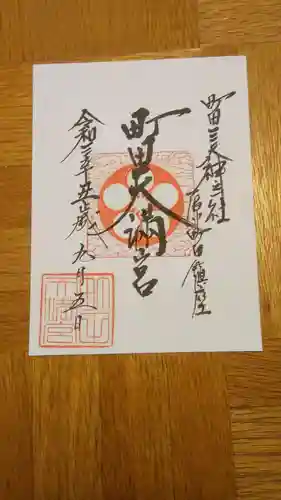 町田三天神三社
原町田鎮座
町田天満宮
令和三年辛丑歳
九月五日